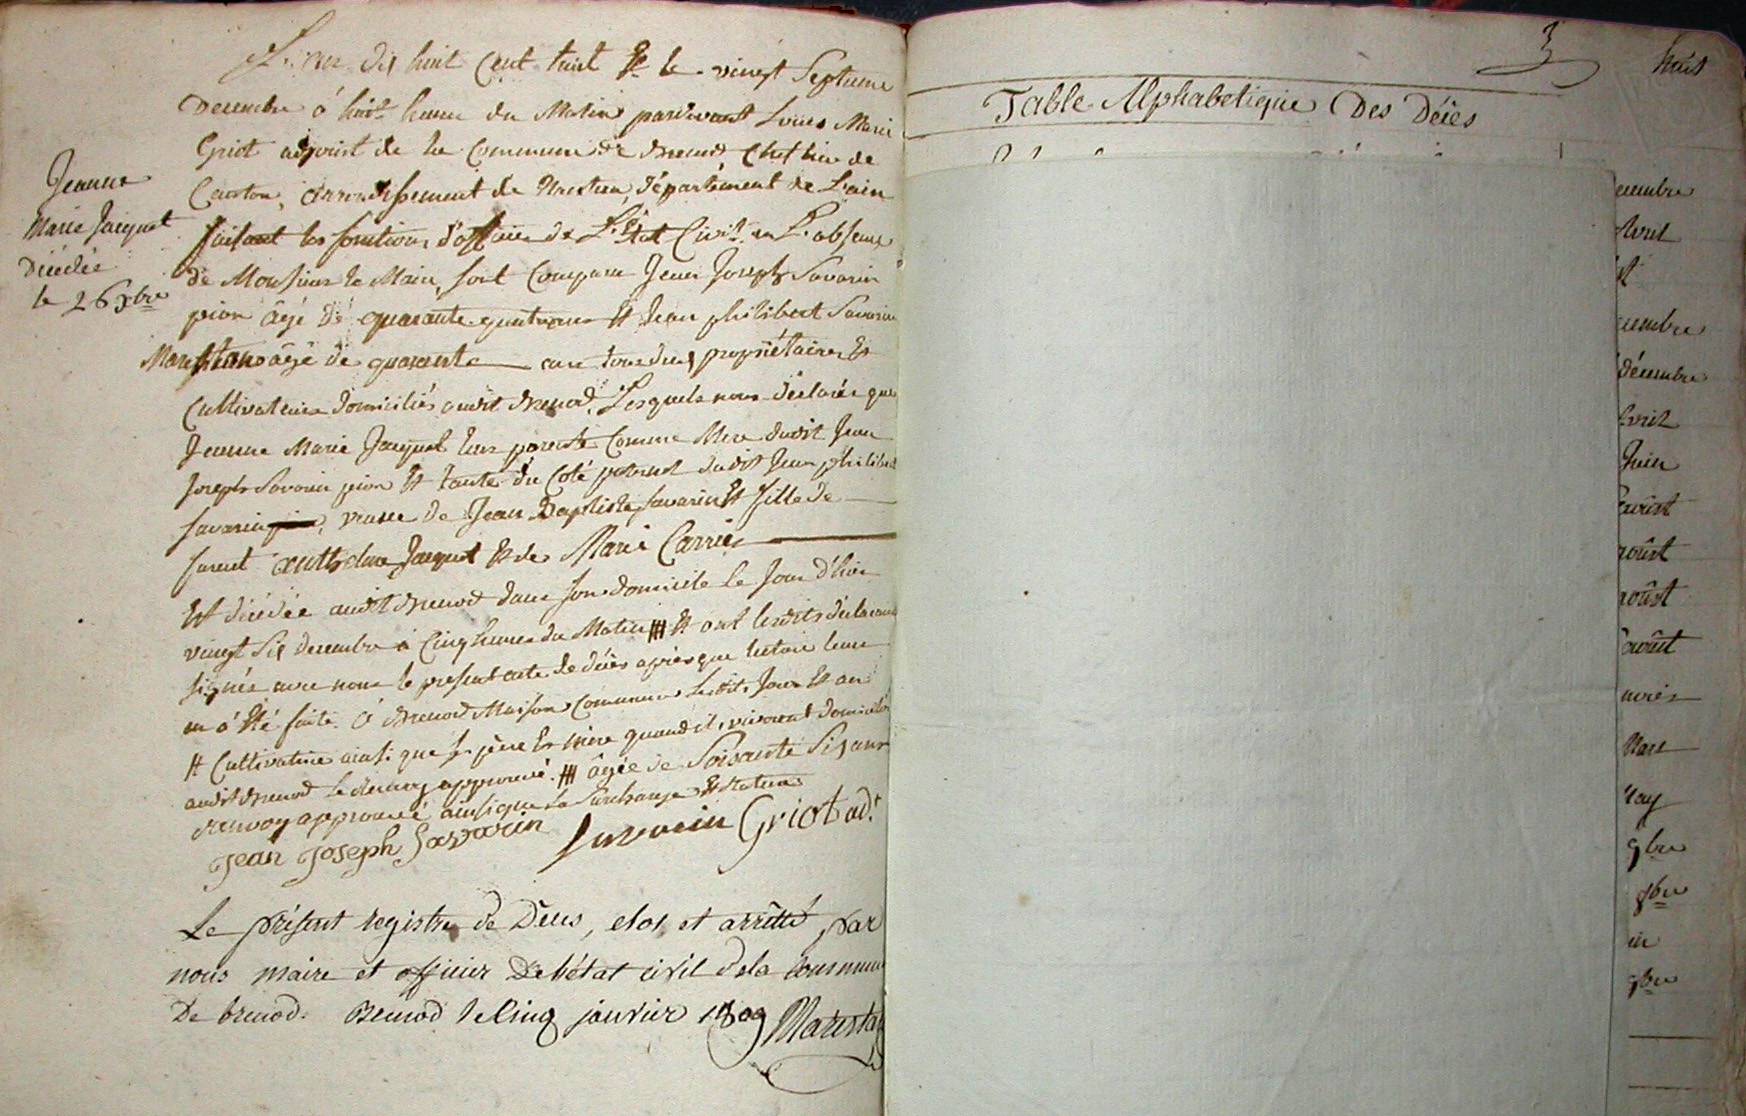 L'an dix huit cent huit Et le vingt Septieme
Decembre á huit heures du Matin pardevant Louis Marie
Griot adjoint de la Commune de Brenod, Chef lieu de
Canton, arrondissement de Nantua, Département de L'ain
faisant les fonctions d'officier de L'État Civil en L'absence
de Monsieur le Maire, sont Comparu Jean Joseph Savarin
pion âgé de quarante-quatre ans Et Jean philibert Savarin
âgé de quarante ans tous deux propriétaires Et
Cultivateurs domiciliés audit Brenod, Lesquels nous déclarés que
Jeanne Marie Jacquet leur parente Comme Mere dudit Jean
Joseph Savarin pion Et tante du Coté paternel dudit Jean philibert
Savarin, veuve de Jean Baptiste Savarin Et fille de
Jacquet Et de Marie Carrier
Est décédée audit Brenod dans son domicile le Jour d'hier
vingt Six decembre à Cinq heures du Matin Et ont lesdits déclarans
signés avec nous le present acte de décès après que lecture leur
en á Eté faite. á Brenod Maison Commune lesdits Jour Et an
# Cultivatrice ainsi que ses père Et mère quand ils vivoient domiciliés
audit Brenod le Renvoy approuvé. âgée de Soixante Six ans
Renvoy approuvé ainsi que la Surcharge
Jean Joseph Savarin Savarin Griot adt
Jeanne
Marie Jacquet
Décédée
le 26 Xbre
Le présent registre de Décès, clos et arrêtté par
nous maire et officier De l'état civil de la Commune
De brenod. Brenod le Cinq janvier 1809
3
huit
Table Alphabetique Des Décès
Décembre
Avril
Juin
août
août
août
Mars
9bre
8bre
9bre